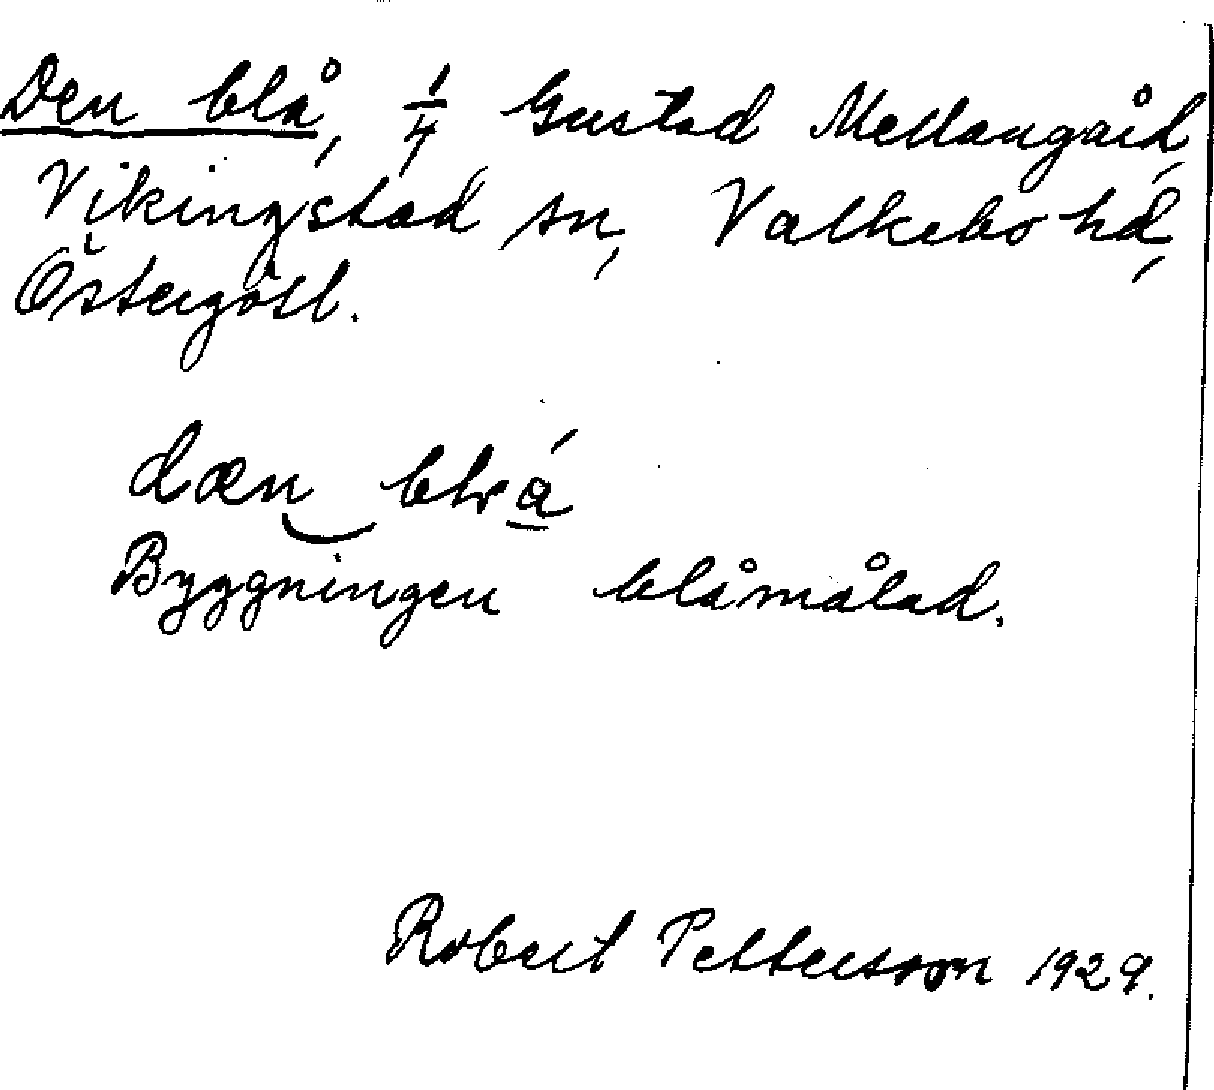 Den blå, 1/4 Gustad Mellangård,
Vikingstad sn, Valkebo hd,
Östergötl.
dæn blrá
Byggningen blåmålad.
Robert Pettersson 1929.